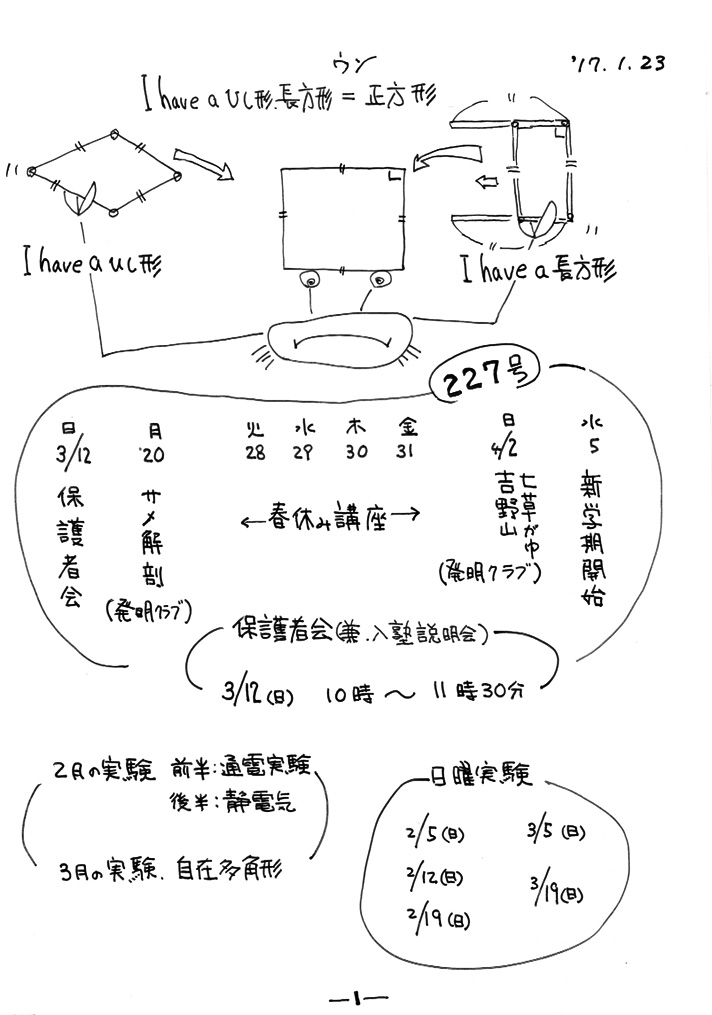 '17.1.23
ウン
I have a ひし形.長方形 = 正方形
I have a ひし形
I have a 長方形
227号
日 月 火 水 木 金 日 水
3/12 '20 28 29 30 31 4/2 5
保護者会
サメ解剖
(発明クラブ)
←春休み講座→
七草がゆ
吉野山
(発明クラブ)
新学期開始
保護者会(兼.入塾説明会)
3/12(日) 10時〜11時30分
2月の実験 前半:通電実験
後半:静電気
3月の実験. 自在多角形
日曜実験
2/5(日) 3/5(日)
2/12(日) 3/19(日)
2/19(日)
—1—